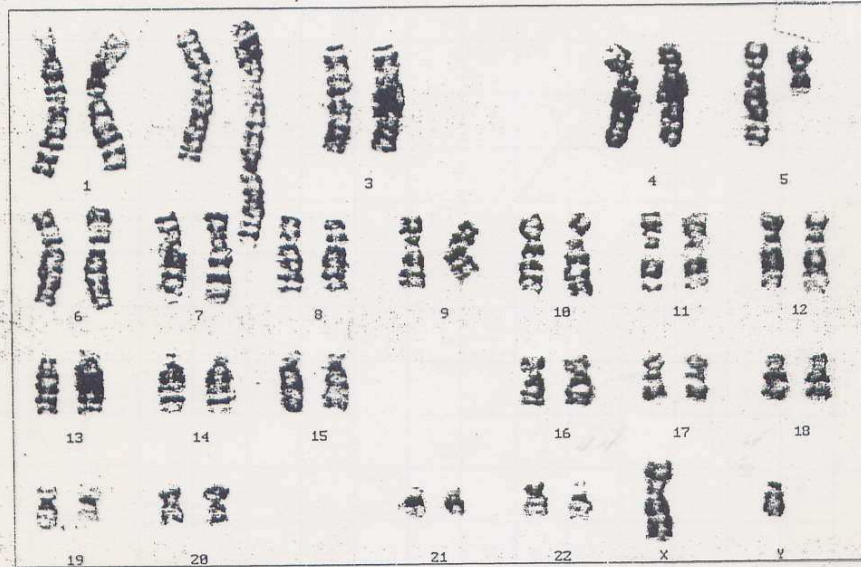 1 3 4 5
6 7 8 9 10 11 12
13 14 15 16 17 18
19 20 21 22 X Y